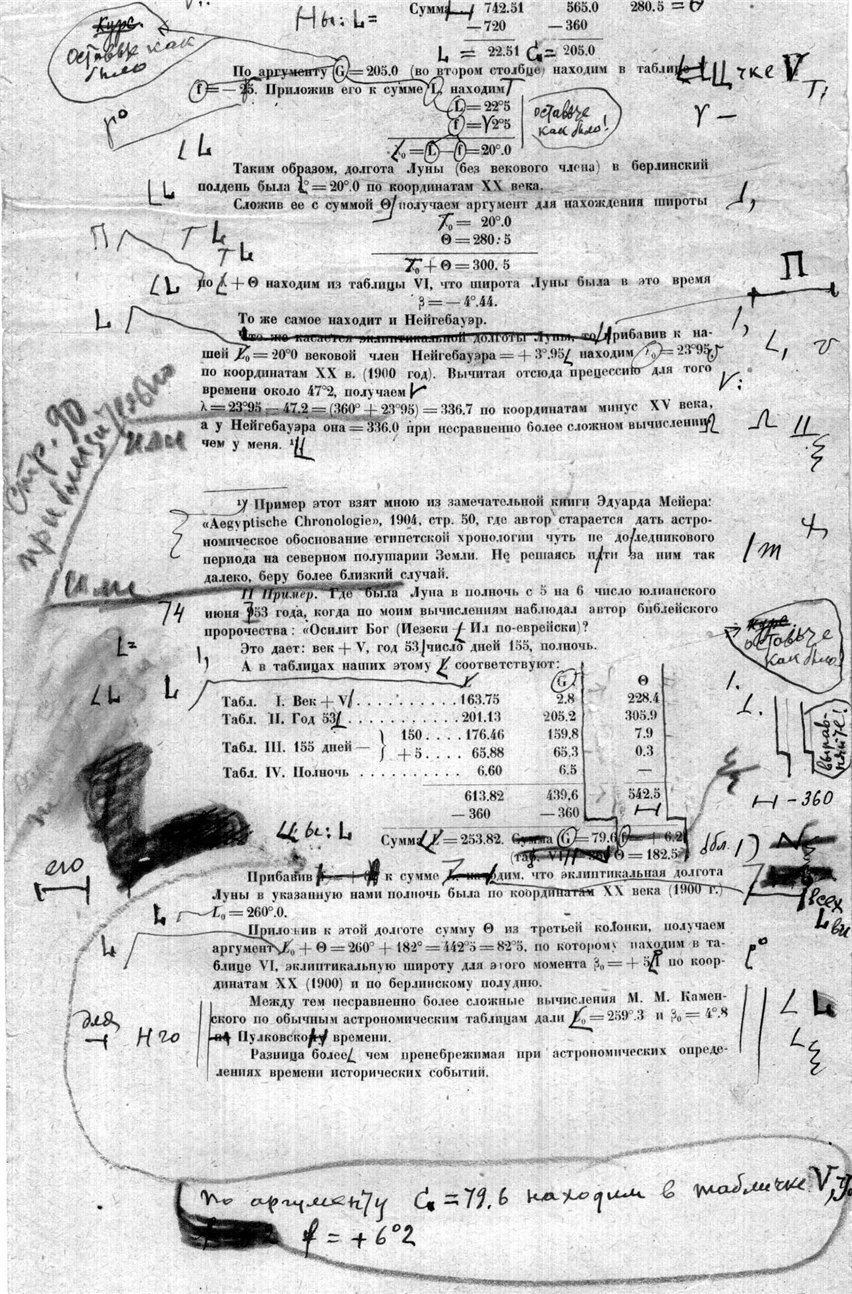 Ны: L=
Сумма 742.51 565.0 280.5 = Θ
—720 —360
L = 22.51 G = 205.0
курс
оставьте как было
По аргументу G = 205.0 (во втором столбце) находим в таблице
чке V
f = — 25. Приложив его к сумме L, находим
L = 22°5
f = 2°5
L₀ = L — f = 20°.0
оставьте
как было!
Таким образом, долгота Луны (без векового члена) в берлинский
полдень была L° = 20°.0 по координатам XX века.
Сложив ее с суммой Θ получаем аргумент для нахождения широты
L₀ = 20°.0
Θ = 280.5
L₀ + Θ = 300.5
по λ + Θ находим из таблицы VI, что широта Луны была в это время
β = — 4°.44.
П
То же самое находит и Нейгебауэр.
Что же касается эклиптикальной долготы Луны, то Прибавив к на-
шей L₀ = 20°0 вековой член Нейгебауэра = + 3°.95 находим L₀ = 23°95
по координатам XX в. (1900 год). Вычитая отсюда прецессию для того
времени около 47°2, получаем
λ = 23°95 — 47.2 = (360° + 23°95) = 336.7 по координатам минус XV века,
а у Нейгебауэра она = 336.0 при несравненно более сложном вычислении
чем у меня. ¹)
Стр. 90
или
¹) Пример этот взят мною из замечательной книги Эдуарда Мейера:
«Aegyptische Chronologie», 1904, стр. 50, где автор старается дать астро-
номическое обоснование египетской хронологии чуть не до ледникового
периода на северном полушарии Земли. Не решаясь идти за ним так
далеко, беру более близкий случай.
или
II Пример. Где была Луна в полночь с 5 на 6 число юлианского
74
июня 753 года, когда по моим вычислениям наблюдал автор библейского
пророчества: «Осилит Бог (Иезеки — Ил по-еврейски)?
Это дает: век + V, год 53, число дней 155, полночь.
А в таблицах наших этому соответствуют:
курс
оставьте
как было!
L G Θ
Табл. I. Век + V . . . . . . . . . . 163.75 2.8 228.4
Табл. II. Год 53 . . . . . . . . . . 201.13 205.2 305.9
Табл. III. 155 дней — { 150 . . . . 176.46 159.8 7.9
+ 5 . . . . 65.88 65.3 0.3
Табл. IV. Полночь . . . . . . . . . 6.60 6.5 —
выравняйте!
613.82 439.6 542.5
— 360 — 360
— 360
Сумма L = 253.82. Сумма G = 79.6 f = + 6.2
(таб. VI) Θ = 182.5
Прибавив к сумме L находим, что эклиптикальная долгота
его
Луны в указанную нами полночь была по координатам XX века (1900 г.)
всех
L₀ = 260°.0.
Приложив к этой долготе сумму Θ из третьей колонки, получаем
аргумент L₀ + Θ = 260° + 182° = 442°5 = 82°5, по которому находим в та-
блице VI, эклиптикальную широту для этого момента β₀ = + 5 по коор-
динатам XX (1900) и по берлинскому полудню.
Между тем несравненно более сложные вычисления М. М. Камен-
ского по обычным астрономическим таблицам дали L₀ = 259°.3 и β₀ = 4°.8
для
Пулковского времени.
Разница более чем пренебрежимая при астрономических опреде-
лениях времени исторических событий.
по аргументу G = 79.6 находим в табличке V,
f = + 6°2